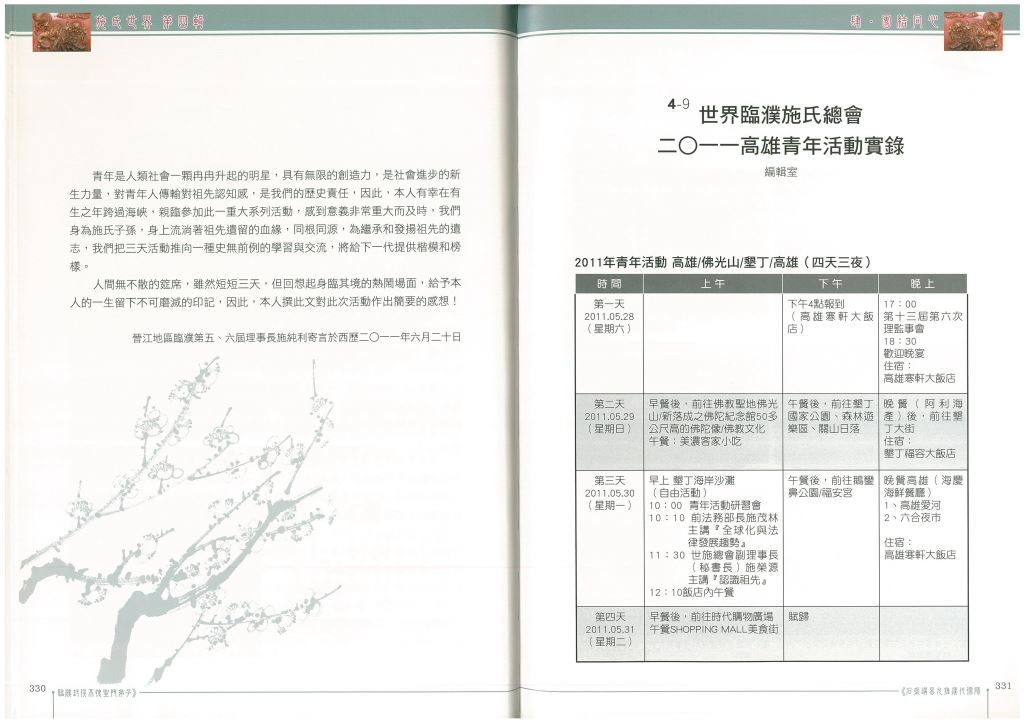 施氏世界 第四輯
青年是人類社會一顆冉冉升起的明星，具有無限的創造力，是社會進步的新
生力量，對青年人傳輸對祖先認知感，是我們的歷史責任，因此，本人有幸在有
生之年跨過海峽，親臨參加此一重大系列活動，感到意義非常重大而及時，我們
身為施氏子孫，身上流淌著祖先遺留的血緣，同根同源，為繼承和發揚祖先的遺
志，我們把三天活動推向一種史無前例的學習與交流，將給下一代提供楷模和榜
樣。
人間無不散的筵席，雖然短短三天，但回想起身臨其境的熱鬧場面，給予本
人的一生留下不可磨滅的印記，因此，本人撰此文對此次活動作出簡要的感想！
晉江地區臨濮第五、六屆理事長施純利寄言於西歷二〇一一年六月二十日
330
肆‧團結同心
4-9 世界臨濮施氏總會
二〇一一高雄青年活動實錄
編輯室
2011年青年活動 高雄/佛光山/墾丁/高雄（四天三夜）
時間 上午 下午 晚上
第一天
2011.05.28
（星期六）
下午4點報到
（高雄寒軒大飯
店）
17：00
第十三屆第六次
理監事會
18：30
歡迎晚宴
住宿：
高雄寒軒大飯店
第二天
2011.05.29
（星期日）
早餐後，前往佛教聖地佛光
山/新落成之佛陀紀念館50多
公尺高的佛陀像/佛教文化
午餐：美濃客家小吃
午餐後，前往墾丁
國家公園、森林遊
樂區、關山日落
晚餐（阿利海
產）後，前往墾
丁大街
住宿：
墾丁福容大飯店
第三天
2011.05.30
（星期一）
早上 墾丁海岸沙灘
（自由活動）
10：00 青年活動研習會
10：10 前法務部長施茂林
主講『全球化與法
律發展趨勢』
11：30 世施總會副理事長
（秘書長）施榮源
主講『認識祖先』
12：10飯店內午餐
午餐後，前往鵝鑾
鼻公園/福安宮
晚餐高雄（海慶
海鮮餐廳）
1、高雄愛河
2、六合夜市
住宿：
高雄寒軒大飯店
第四天
2011.05.31
（星期二）
早餐後，前往時代購物廣場
午餐SHOPPING MALL美食街
賦歸
331